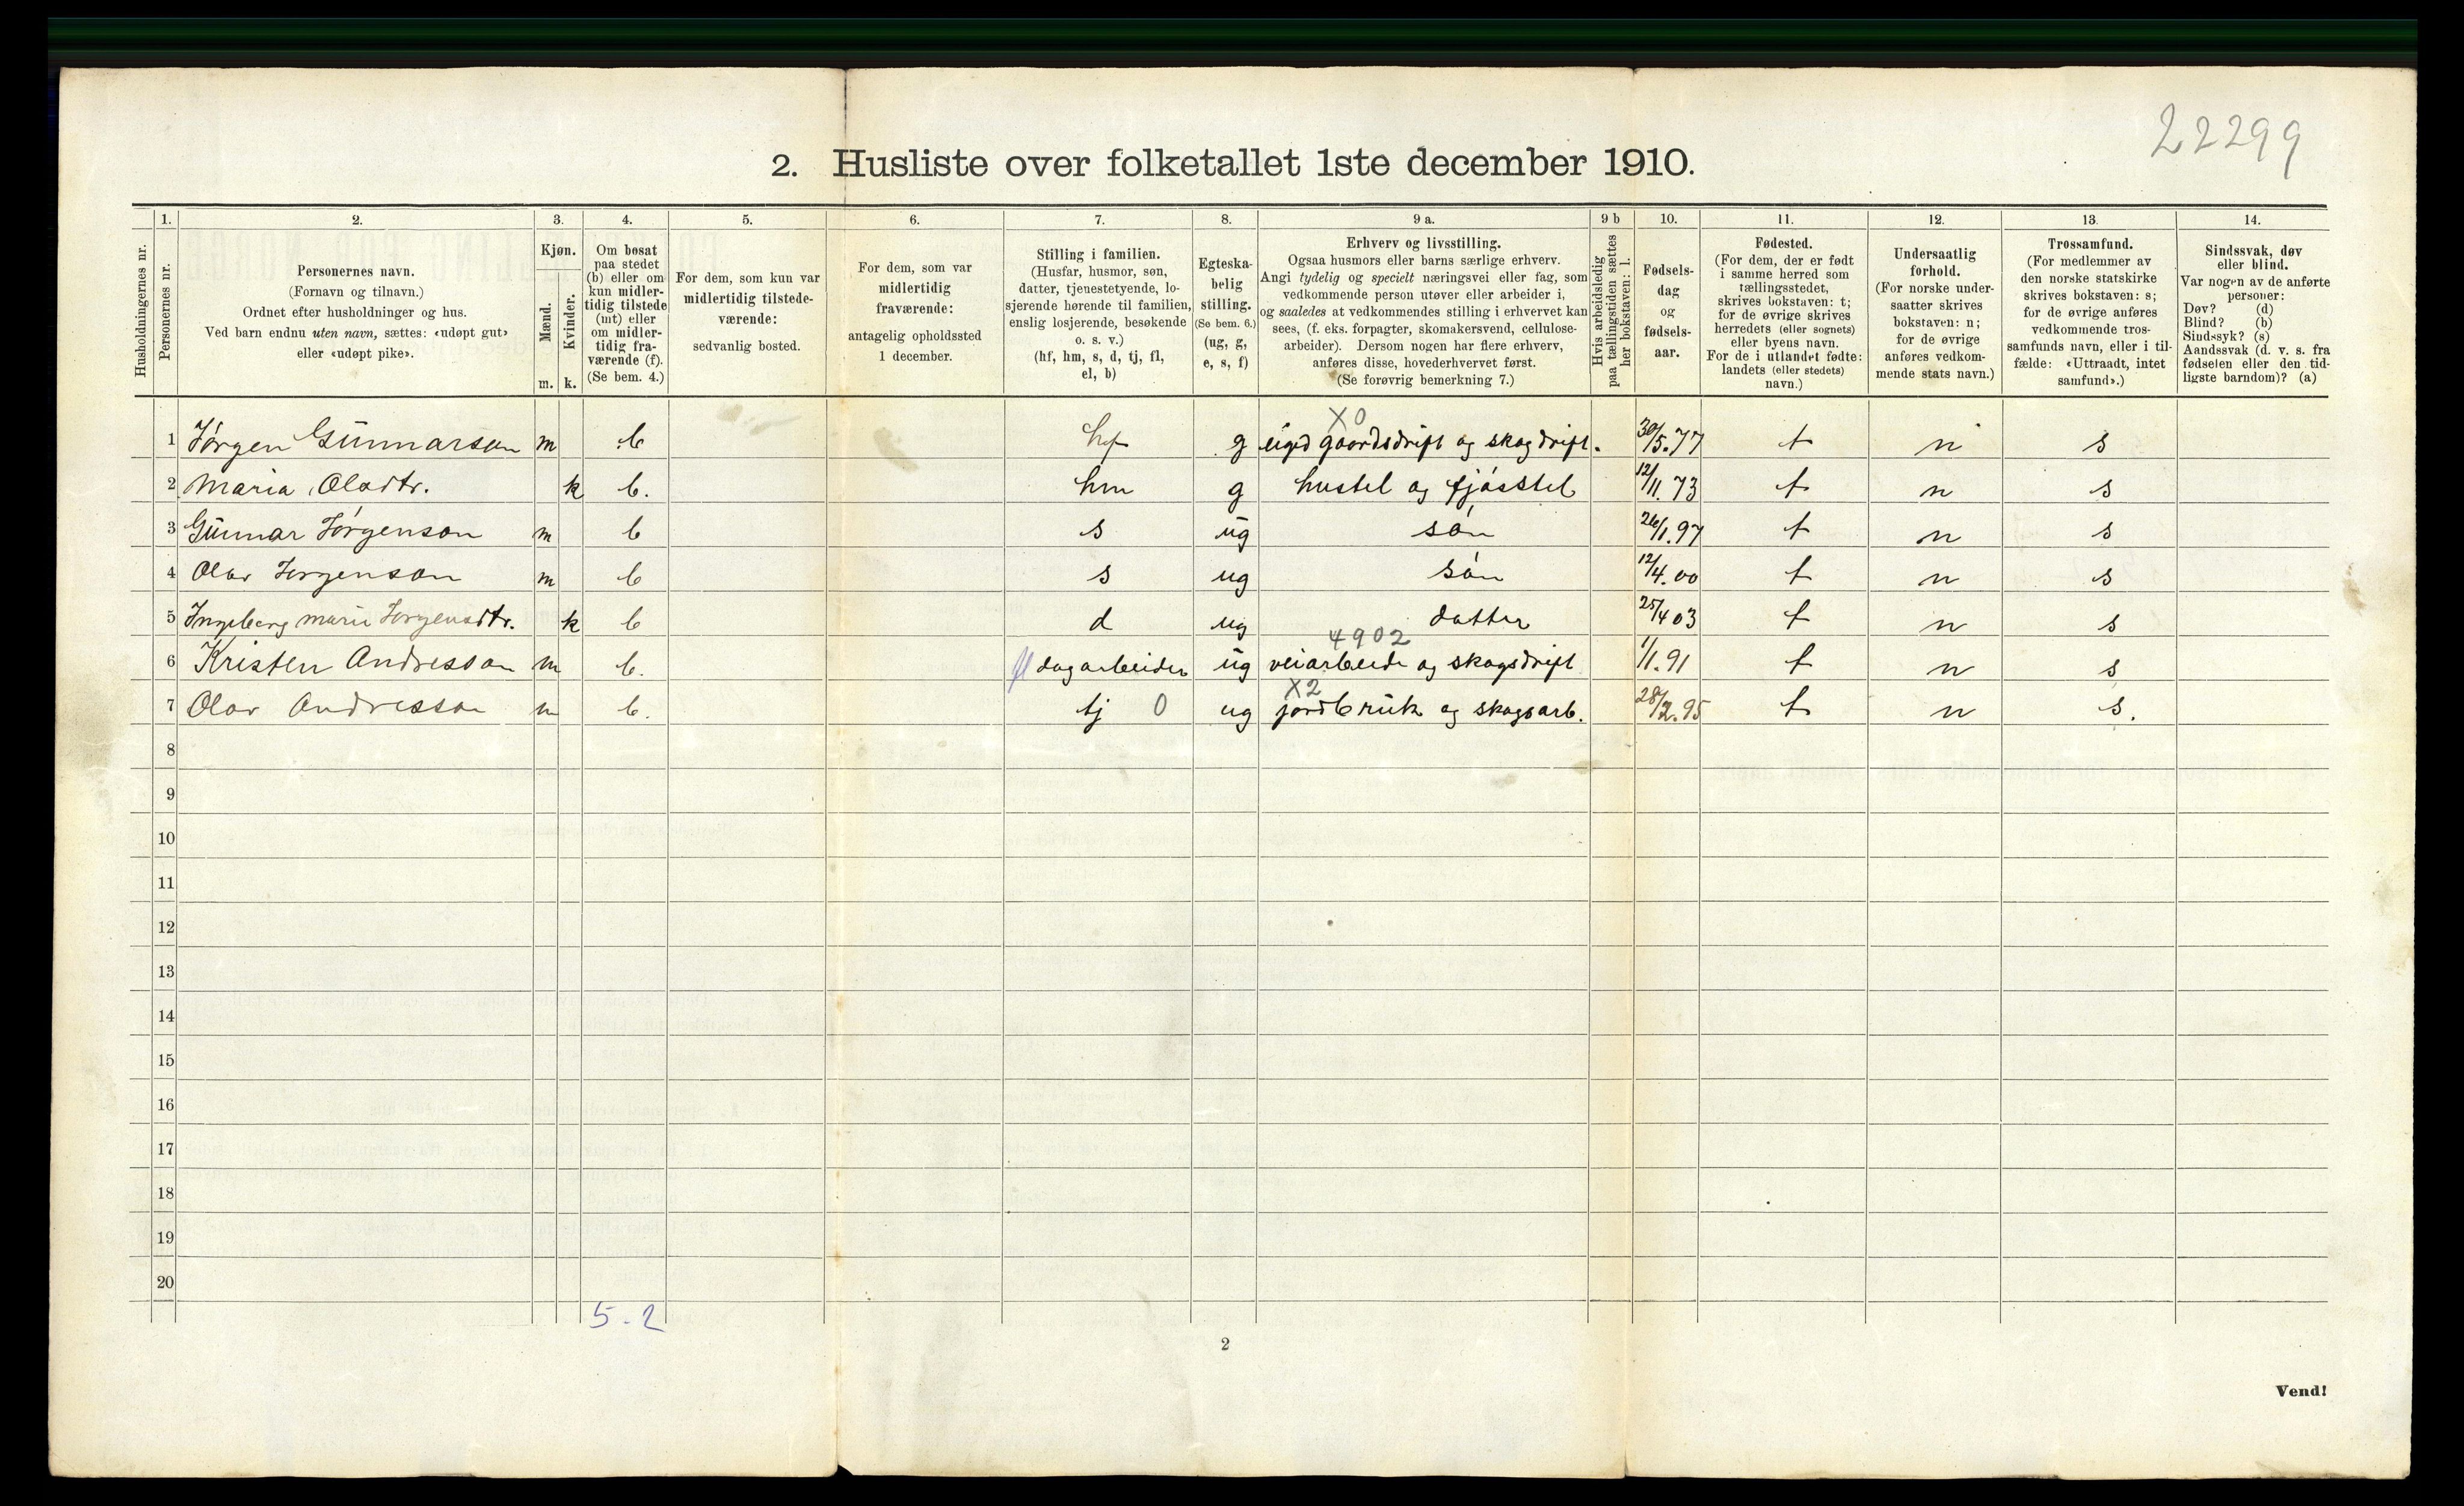 22299
2. Husliste over folketallet 1ste december 1910.
1. 2. 3. 4. 5. 6. 7. 8. 9 a. 9 b 10. 11. 12. 13. 14.
Husholdningernes nr.
Personernes nr.
Personernes navn.
(Fornavn og tilnavn.)
Ordnet efter husholdninger og hus.
Ved barn endnu uten navn, sættes: «udøpt gut»
eller «udøpt pike».
Kjøn.
Mænd.
Kvinder.
m. k.
Om bosat
paa stedet
(b) eller om
kun midler-
tidig tilstede
(mt) eller
om midler-
tidig fra-
værende (f).
(Se bem. 4.)
For dem, som kun var
midlertidig tilstede-
værende:
sedvanlig bosted.
For dem, som var
midlertidig
fraværende:
antagelig opholdssted
1 december.
Stilling i familien.
(Husfar, husmor, søn,
datter, tjenestetyende, lo-
sjerende hørende til familien,
enslig losjerende, besøkende
o. s. v.)
(hf, hm, s, d, tj, fl,
el, b)
Egteska-
belig
stilling.
(Se bem. 6.)
(ug, g,
e, s, f)
Erhverv og livsstilling.
Ogsaa husmors eller barns særlige erhverv.
Angi tydelig og specielt næringsvei eller fag, som
vedkommende person utøver eller arbeider i,
og saaledes at vedkommendes stilling i erhvervet kan
sees, (f. eks. forpagter, skomakersvend, cellulose-
arbeider). Dersom nogen har flere erhverv,
anføres disse, hovederhvervet først.
(Se forøvrig bemerkning 7.)
Hvis arbeidsledig
paa tællingstiden sættes
her bokstaven: l.
Fødsels-
dag
og
fødsels-
aar.
Fødested.
(For dem, der er født
i samme herred som
tællingsstedet,
skrives bokstaven: t;
for de øvrige skrives
herredets (eller sognets)
eller byens navn.
For de i utlandet fødte:
landets (eller stedets)
navn.)
Undersaatlig
forhold.
(For norske under-
saatter skrives
bokstaven: n;
for de øvrige
anføres vedkom-
mende stats navn.)
Trossamfund.
(For medlemmer av
den norske statskirke
skrives bokstaven: s;
for de øvrige anføres
vedkommende tros-
samfunds navn, eller i til-
fælde: «Uttraadt, intet
samfund».)
Sindssvak, døv
eller blind.
Var nogen av de anførte
personer:
Døv? (d)
Blind? (b)
Sindssyk? (s)
Aandssvak (d. v. s. fra
fødselen eller den tid-
ligste barndom)? (a)
X0
1 Jørgen Gunnarson m b hf g eigd gaardsdrift og skogdrift. 30/5.77 t n s
2 Maria Olavdtr. k b. hm g hustel og fjósstel 12/11.73 t n s
3 Gunnar Jørgenson m b s ug són 26/1.97 t n s
4 Olav Jorgenson m b s ug són 12/4.00 t n s
5 Ingeborg Marie Jorgensdtr. k b d ug datter 25/4 03 t n s
4902
6 Kristen Andresson m b. fl dagarbeider ug veiarbeide og skogsdrift 1/1.91 t n s
X2
7 Olav Andresson m b. tj 0 ug jordbruk og skogsarb. 28/2.95 t n s.
8
9
10
11
12
13
14
15
16
17
18
19
20
5 - 2
2
Vend!